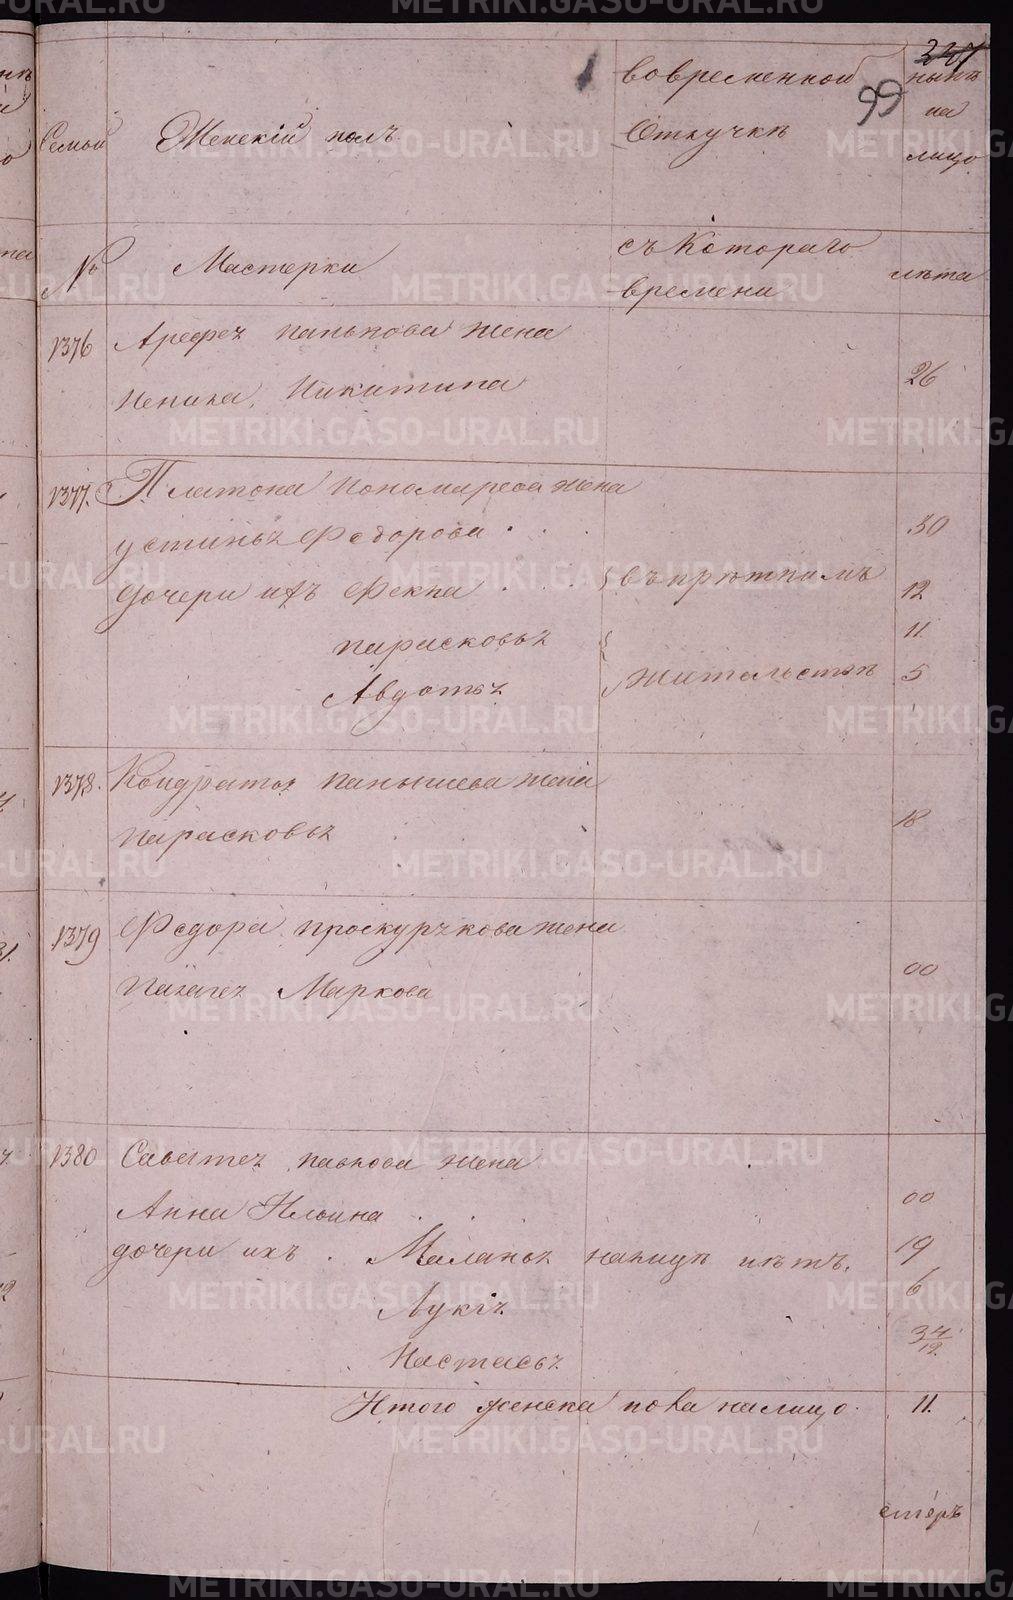 337
99
Семьи
Женскій полъ
вовременной
Отлучкѣ
нынѣ
на
лицо
№
Мастерки
съ Котораго
времени
лѣта
1376
Арефья панькова жена
Ненила Никитина
26
1377.
Платона пономарева жена
устинья Федорова
30
дочери ихъ Фекла
въ прѣжнемъ
12
парасковья
11.
Авдотья
жительствѣ
5
1378.
Кондратья панышева жена
парасковья
18
1379
Федора проскурякова жена
Палагея Маркова
00
1380
Савватея павкова жена
Анна Ильина
00
дочери ихъ . Маланья налицѣ нѣтъ.
19
Лукія
6
Настасья
3/4 /12.
Итого женска пола налицо.
11.
METRIKI.GASO-URAL.RU